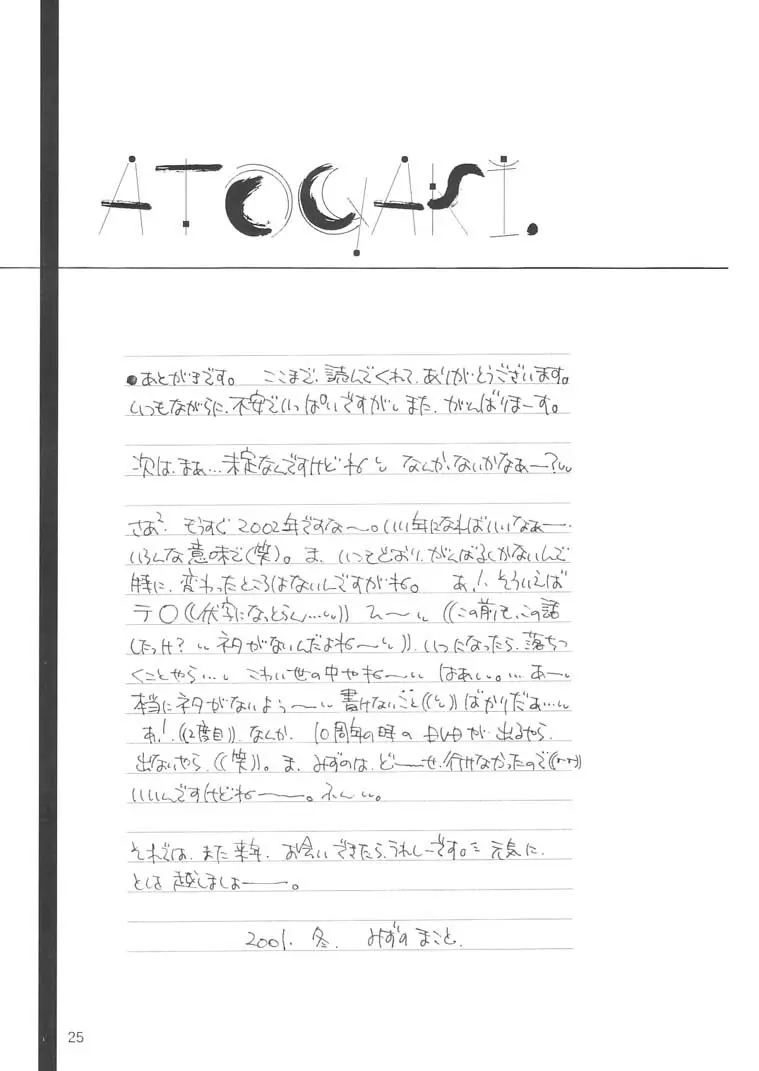 ATOGAKI.
●あとがきです。 ここまで、読んでくれて、ありがとうございます。
いつもながらに、不安でいっぱいですが、また、がんばりまーす。
次は、まぁ…未定なんですけどね なんか、ないかなぁー?
さあ² もうすぐ2002年ですな〜。いい年になればいいなぁー。
いろんな意味で(笑)。ま、いつもどおり、がんばるしかないんで
特に、変わったところはないんですがね。 あ!、そういえば
テ〇((伏字になっとらん…)) ひ〜 ((この前も、この話
したっけ? ネタがないんだよね〜))、いつになったら、落ちつ
くことやら… こわい世の中やね〜 はぁ…。…あー
本当にネタがないよぅ〜 書けないこと(())ばかりだぁ…
あ!、((2度目))、なんか、10周年の時の DVDが、出るやら、
出ないやら、((笑))。ま、みずのは、ど——せ、行けなかったので
いいんですけどね———。ふん。
それでは、また来年、お会いできたら、うれしーです。元気に、
とし越しましょ———。
2001. 冬. みずの まこと.
25